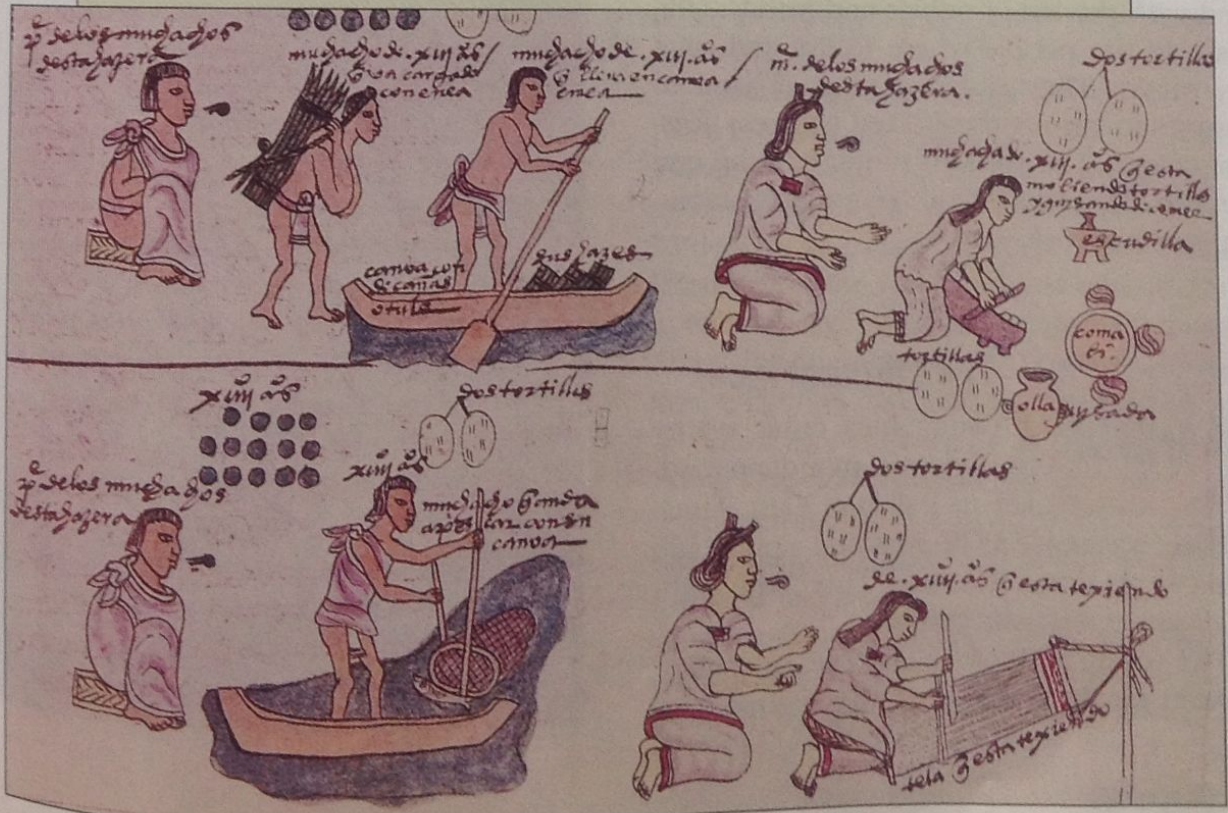 pᵉ de los muchachos
desta hazera
muchacho de .xiij. aⁿs
q̄ va cargado
con enea
muchacho de .xiij. aⁿs
q̄ lleva en canoa
enea
mᵉ. de los muchachos
desta hazera.
dos tortillas
muchacha de .xiij. aⁿs q̄ esta
moliendo tortillas
y guysando de comer
escudilla
canoa con
sus hazes
de cañas
comali.
tortillas
olla
guysada
xiiij aⁿs
dos tortillas
pᵉ de los muchachos
desta hazera
xiiij aⁿs
muchacho q̄ anda
a pescar con su
canoa
dos tortillas
de .xiiij. aⁿs q̄ esta texiendo
tela q̄ esta texiendo